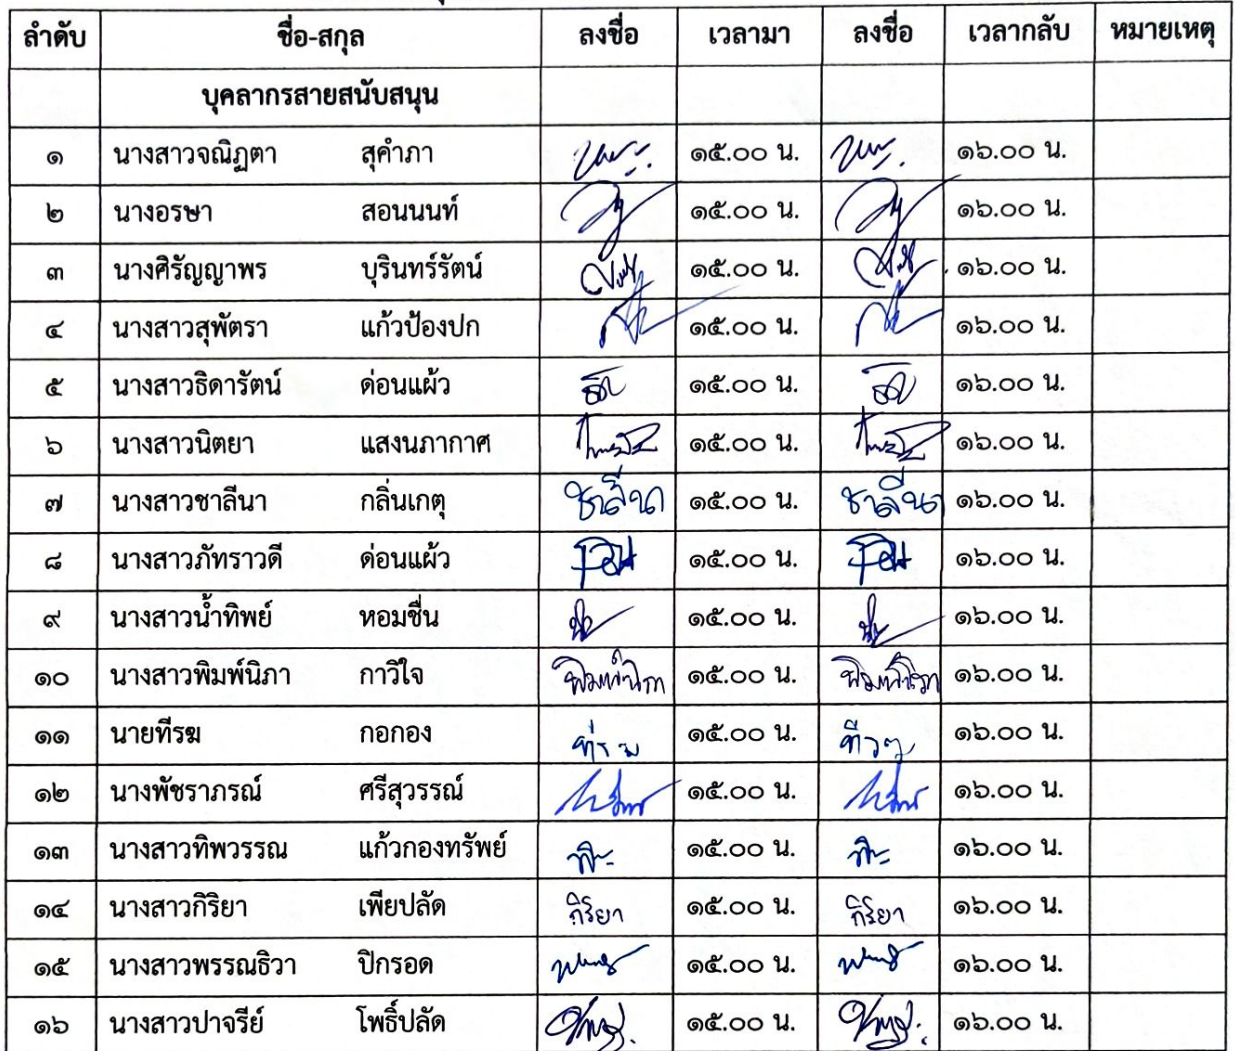 ลำดับ ชื่อ-สกุล ลงชื่อ เวลามา ลงชื่อ เวลากลับ หมายเหตุ
บุคลากรสายสนับสนุน
๑ นางสาวจณิฏตา สุคำภา ๑๕.๐๐ น. ๑๖.๐๐ น.
๒ นางอรษา สอนนนท์ ๑๕.๐๐ น. ๑๖.๐๐ น.
๓ นางศิรัญญาพร บุรินทร์รัตน์ ๑๕.๐๐ น. ๑๖.๐๐ น.
๔ นางสาวสุพัตรา แก้วป้องปก ๑๕.๐๐ น. ๑๖.๐๐ น.
๕ นางสาวธิดารัตน์ ด่อนแผ้ว ๑๕.๐๐ น. ๑๖.๐๐ น.
๖ นางสาวนิตยา แสงนภากาศ ๑๕.๐๐ น. ๑๖.๐๐ น.
๗ นางสาวชาลีนา กลิ่นเกตุ ชาลีนา ๑๕.๐๐ น. ชาลีนา ๑๖.๐๐ น.
๘ นางสาวภัทราวดี ด่อนแผ้ว ๑๕.๐๐ น. ๑๖.๐๐ น.
๙ นางสาวน้ำทิพย์ หอมชื่น ๑๕.๐๐ น. ๑๖.๐๐ น.
๑๐ นางสาวพิมพ์นิภา กาวิใจ พิมพ์นิภา ๑๕.๐๐ น. พิมพ์นิภา ๑๖.๐๐ น.
๑๑ นายทีรฆ กอกอง ๑๕.๐๐ น. ๑๖.๐๐ น.
๑๒ นางพัชราภรณ์ ศรีสุวรรณ์ ๑๕.๐๐ น. ๑๖.๐๐ น.
๑๓ นางสาวทิพวรรณ แก้วกองทรัพย์ ๑๕.๐๐ น. ๑๖.๐๐ น.
๑๔ นางสาวกิริยา เพียปลัด กิริยา ๑๕.๐๐ น. กิริยา ๑๖.๐๐ น.
๑๕ นางสาวพรรณธิวา ปิกรอด ๑๕.๐๐ น. ๑๖.๐๐ น.
๑๖ นางสาวปาจรีย์ โพธิ์ปลัด ๑๕.๐๐ น. ๑๖.๐๐ น.